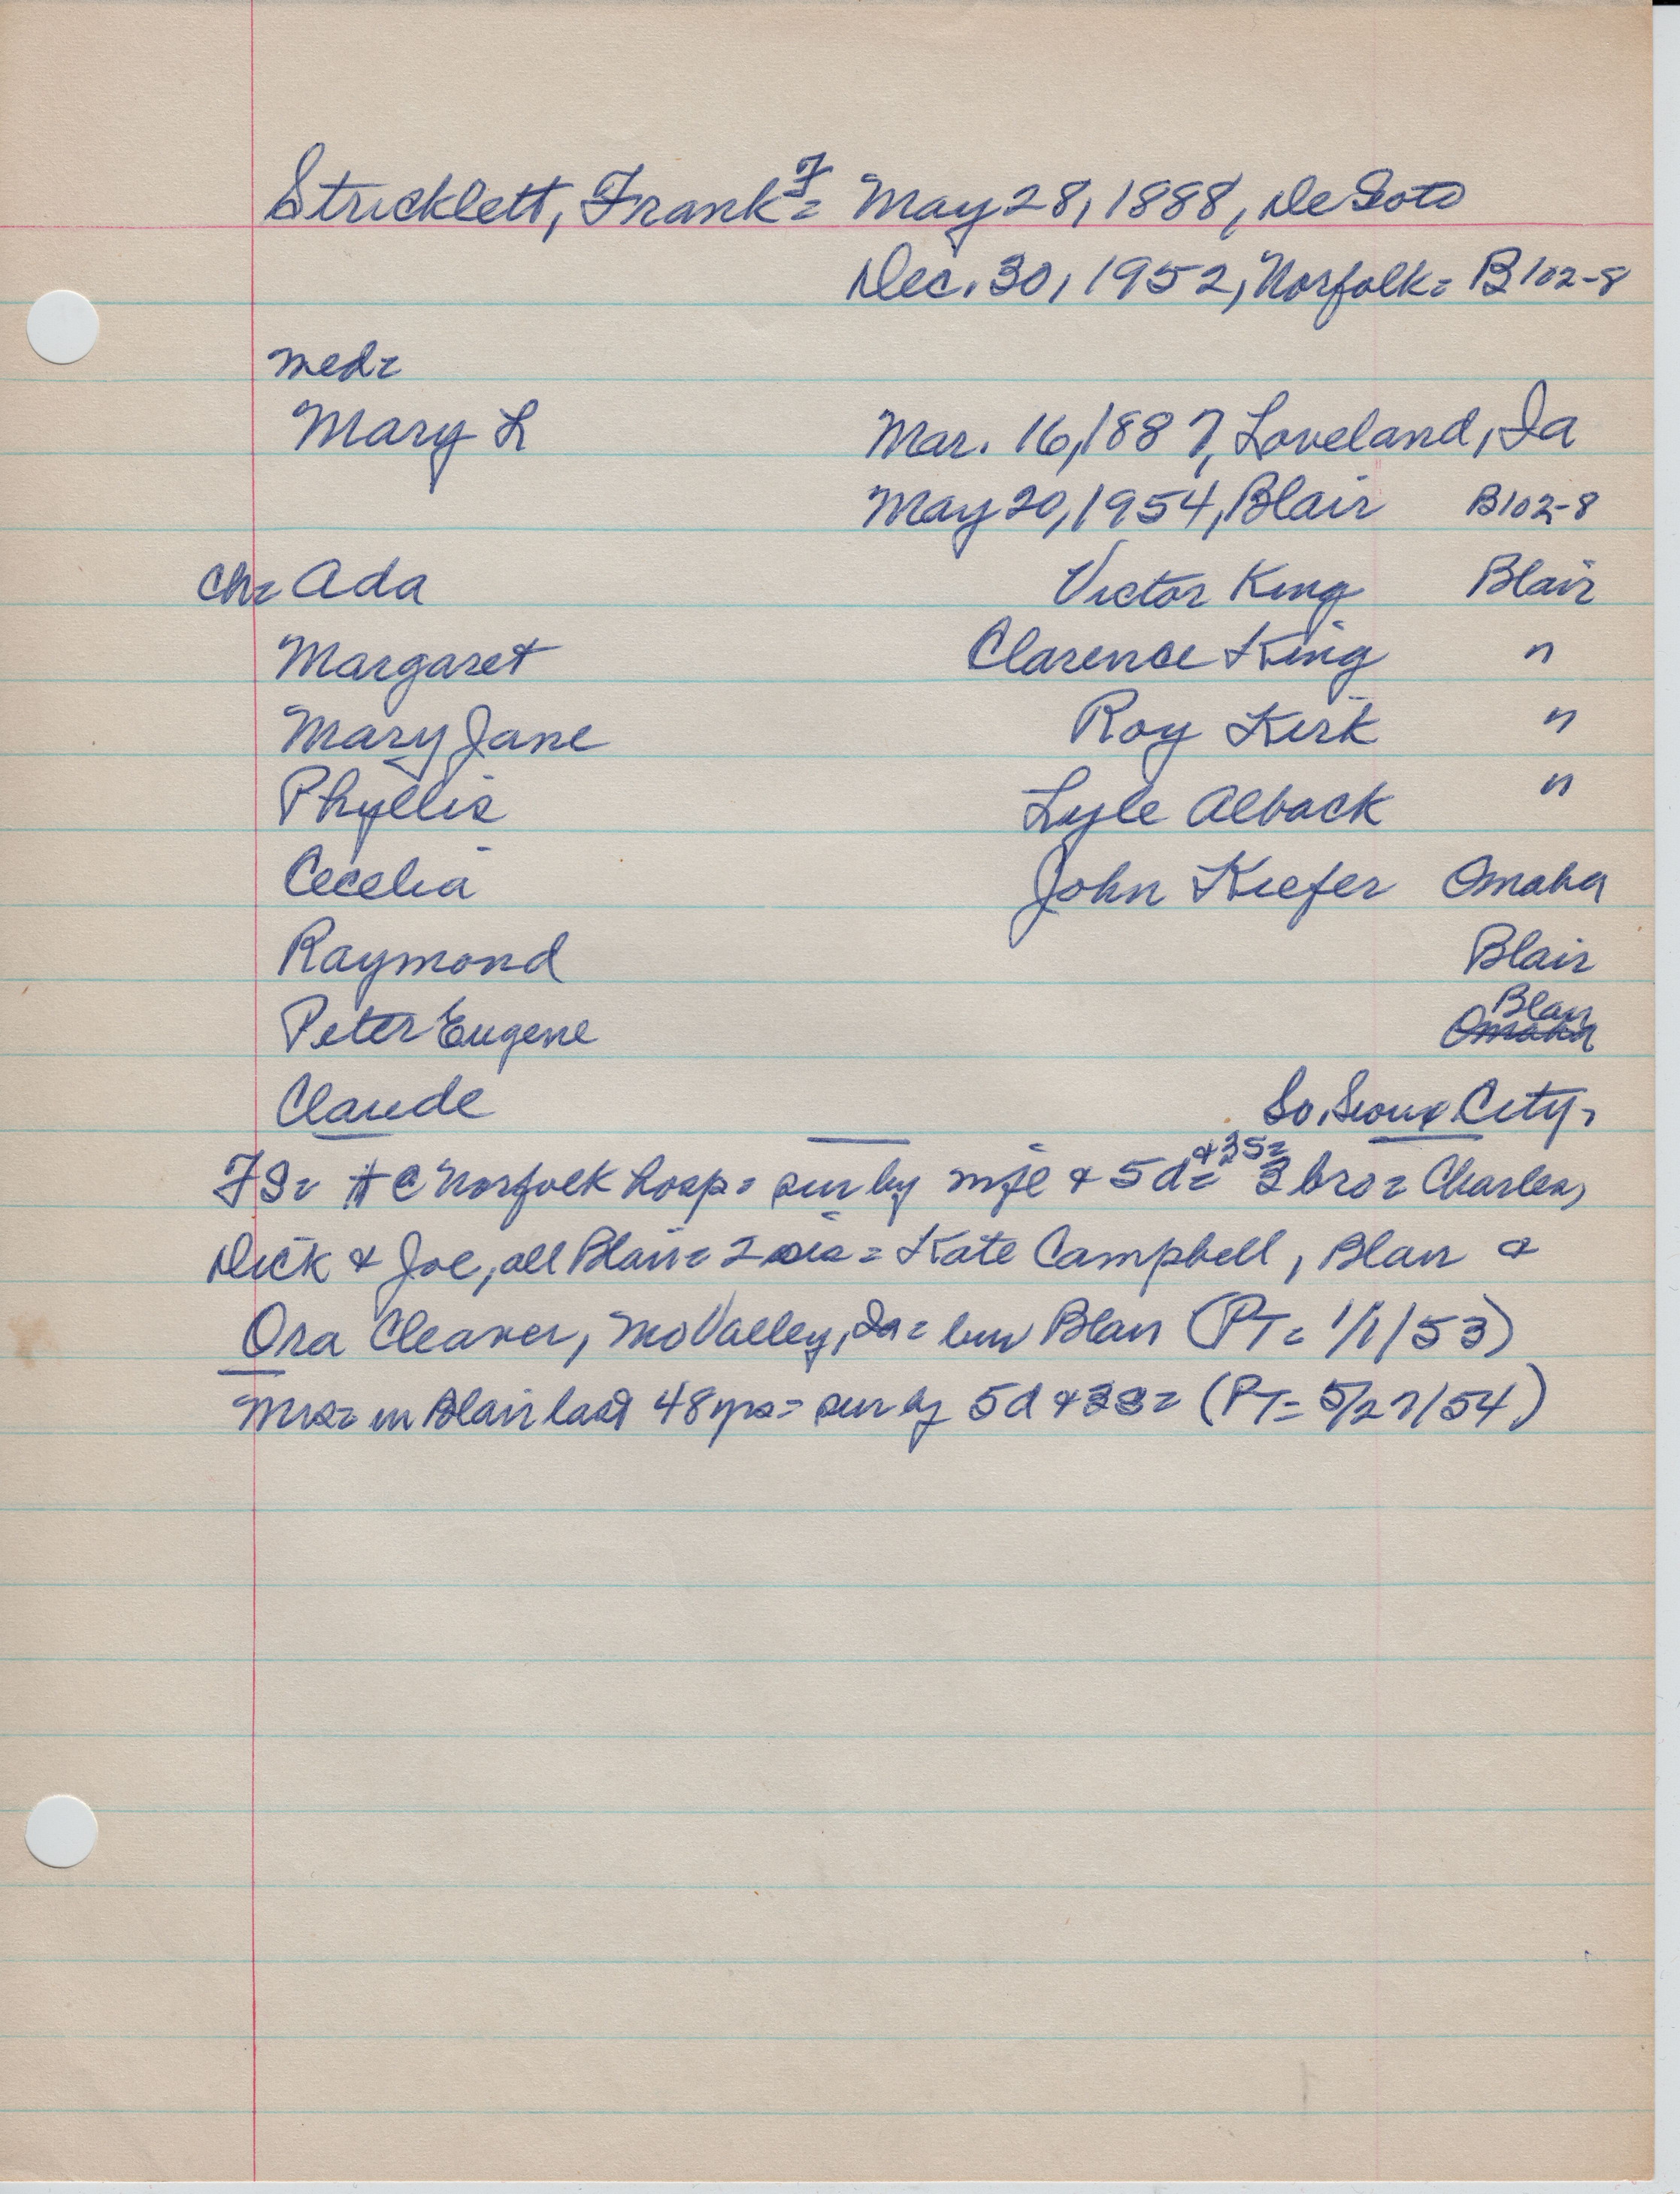 Stricklett, Frank F= May 28, 1888, DeSoto
Dec. 30, 1952, Norfolk= B102-8
med=
Mary L Mar. 16, 1887, Loveland, Ia
May 20, 1954, Blair B102-8
Ch= Ada Victor King Blair
Margaret Clarence King "
Mary Jane Roy Kirk "
Phyllis Lyle Alback "
Cecelia John Kiefer Omaha
Raymond Blair
Peter Eugene Blair Omaha
Claude So. Sioux City,
FS= @ Norfolk hosp= sur by wife & 5d= & 3S= 3 bro= Charles,
Dick & Joe, all Blair= 2 sis= Kate Campbell, Blair &
Ora Cleaver, Mo Valley, Ia= bur Blair (PT= 1/1/53)
Mrs= in Blair last 48 yrs= sur by 5d & 3S= (PT= 5/27/54)